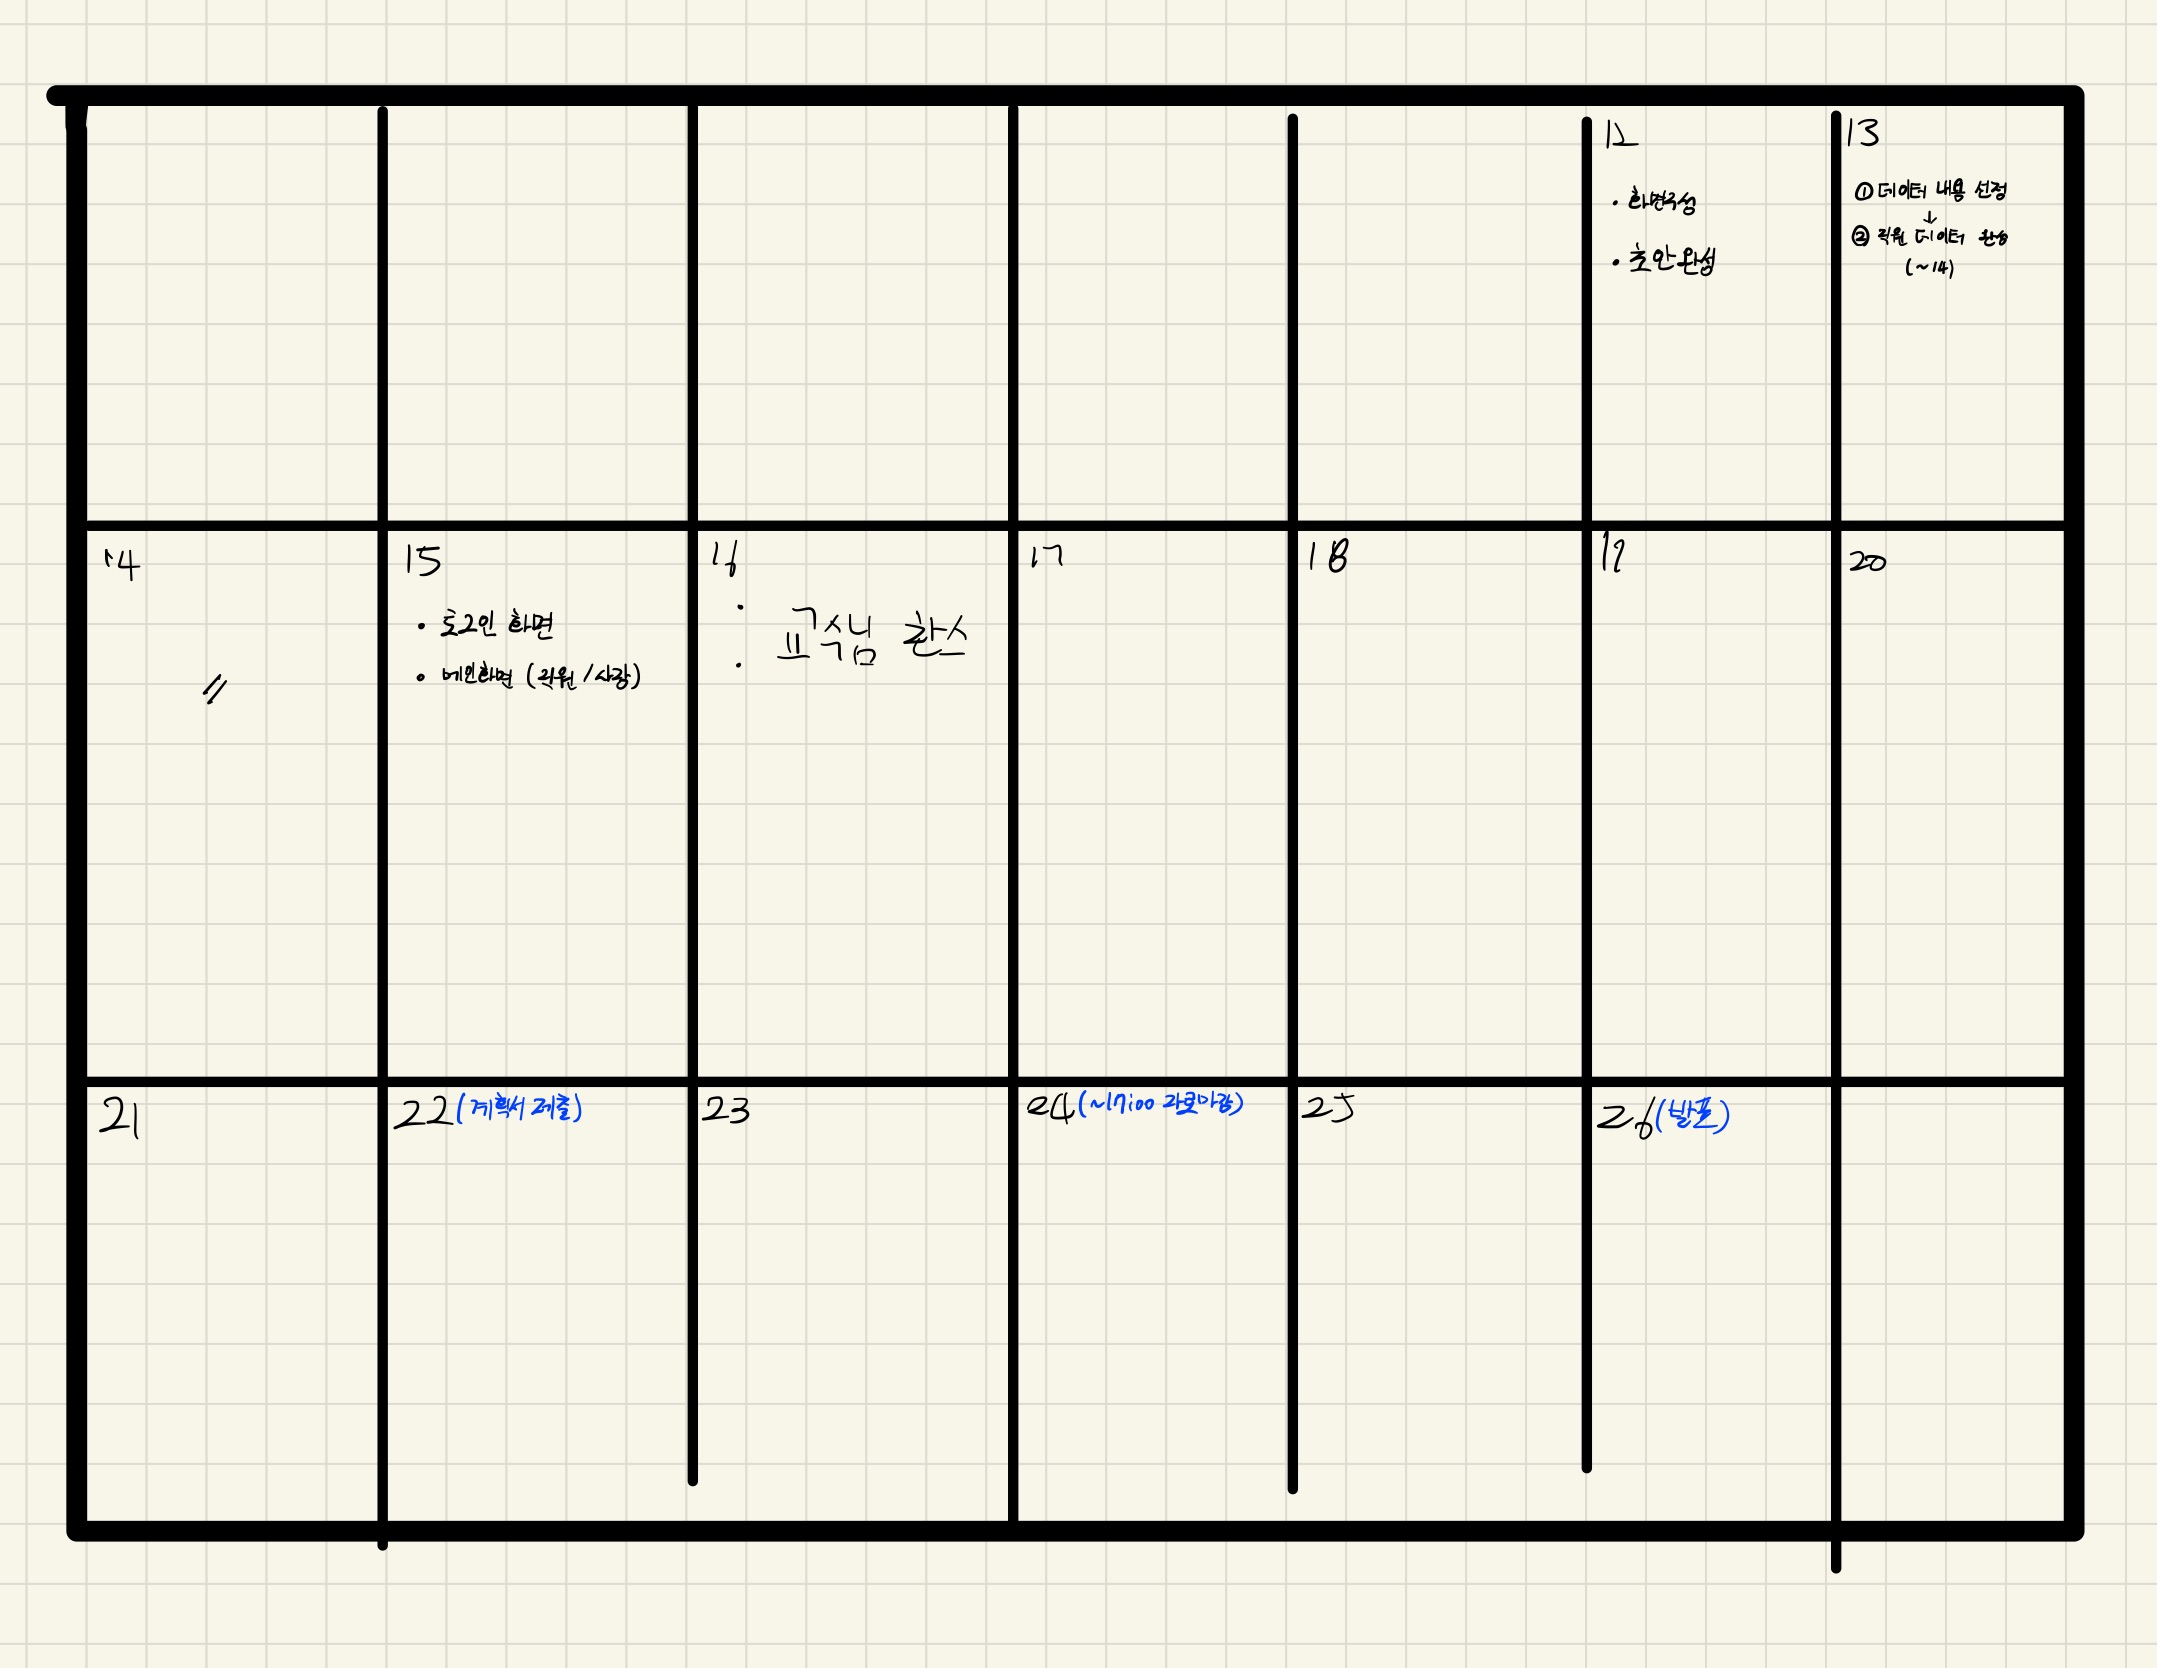 12
• 화면구성
• 초안완성
13
① 데이터 내용 선정
↓
② 직원 데이터 완성
(~14)
14
〃
15
• 로그인 화면
• 메인화면 (직원 / 사장)
16
17
18
19
20
21
22 (계획서 제출)
23
24 (~17:00 자료마감)
25
26 (발표)